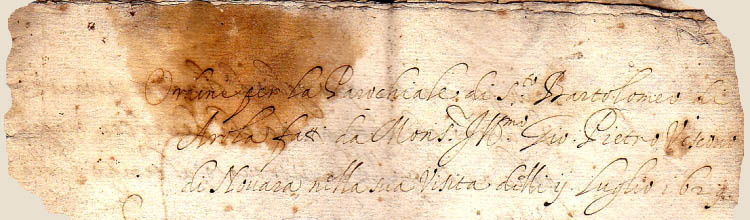 Ordine per la Parochiale di S.to Bartolomeo di
Arola fatt. da Mons.r Ill.mo Gio Pietro Vescovo
di Novara nella sua Visita delli Luglio